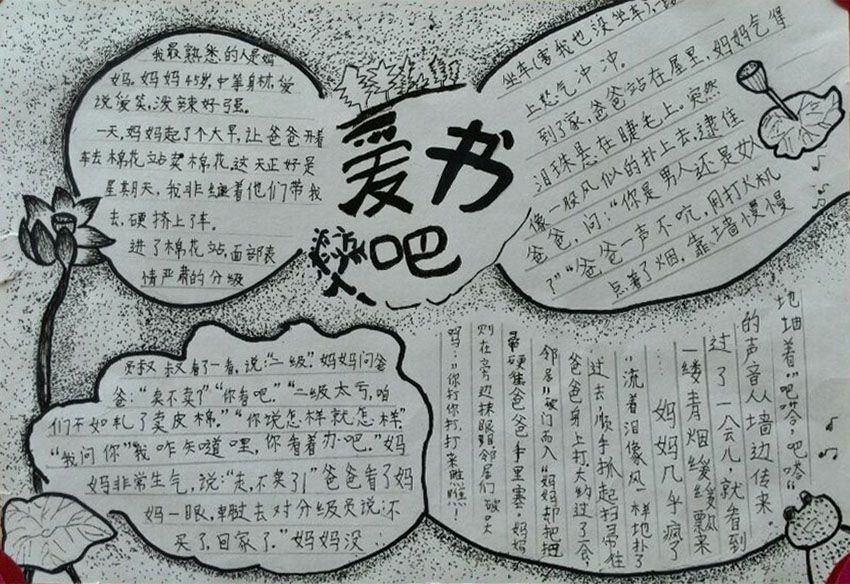 爱书
吧
我最熟悉的人是妈
妈。妈妈45岁,中等身材,爱
说爱笑,泼辣好强。
一天,妈妈起了个大早,让爸爸开着
车去棉花站卖棉花,这天正好是
星期天,我非缠着他们带我
去,硬挤上了车。
进了棉花站,面部表
情严肃的分级
叔叔看了一看,说:“二级”。妈妈问爸
爸:“卖不卖了”“你看吧。”“二级太亏,咱
们不如轧了卖皮棉。”“你说怎样就怎样”
“我问你”“我咋知道哩,你看着办吧。”妈
妈非常生气,说:“走,不卖了!”爸爸看了妈
妈一眼,转过去对分级员说:不
买了,回家了。”妈妈没
坐车(害我也没坐车),一路
上怒气冲冲。
到了家,爸爸站在屋里,妈妈气得
泪珠悬在睫毛上。突然
像一股风似的扑上去,逮住
爸爸,问:“你是男人还是女人
了”“爸爸一声不吭,用打火机
点着了烟,靠墙慢慢
地抽着”吧嗒,吧嗒“
的声音从墙边传来。
过了一会儿,就看到
一缕青烟缓缓飘来
…妈妈几乎疯了
“流着泪像风一样地扑了
过去,顺手抓起扫帚往
爸爸身上打大约过了会,
邻居破门而入“妈妈却把把
帚硬往爸爸手里塞,妈妈
则在旁边抹眼泪邻居们破口大
吗:“你打你打,打来瞧瞧!